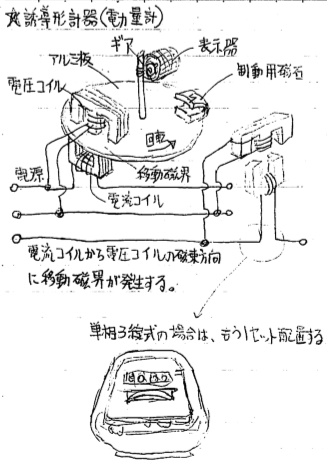 誘導形計器(電力量計)
ギア
表示器
アルミ板
制動用磁石
電圧コイル
回転
電源
移動磁界
電流コイル
電流コイルから電圧コイルの磁束方向
に移動磁界が発生する。
単相3線式の場合は、もう1セット配置する